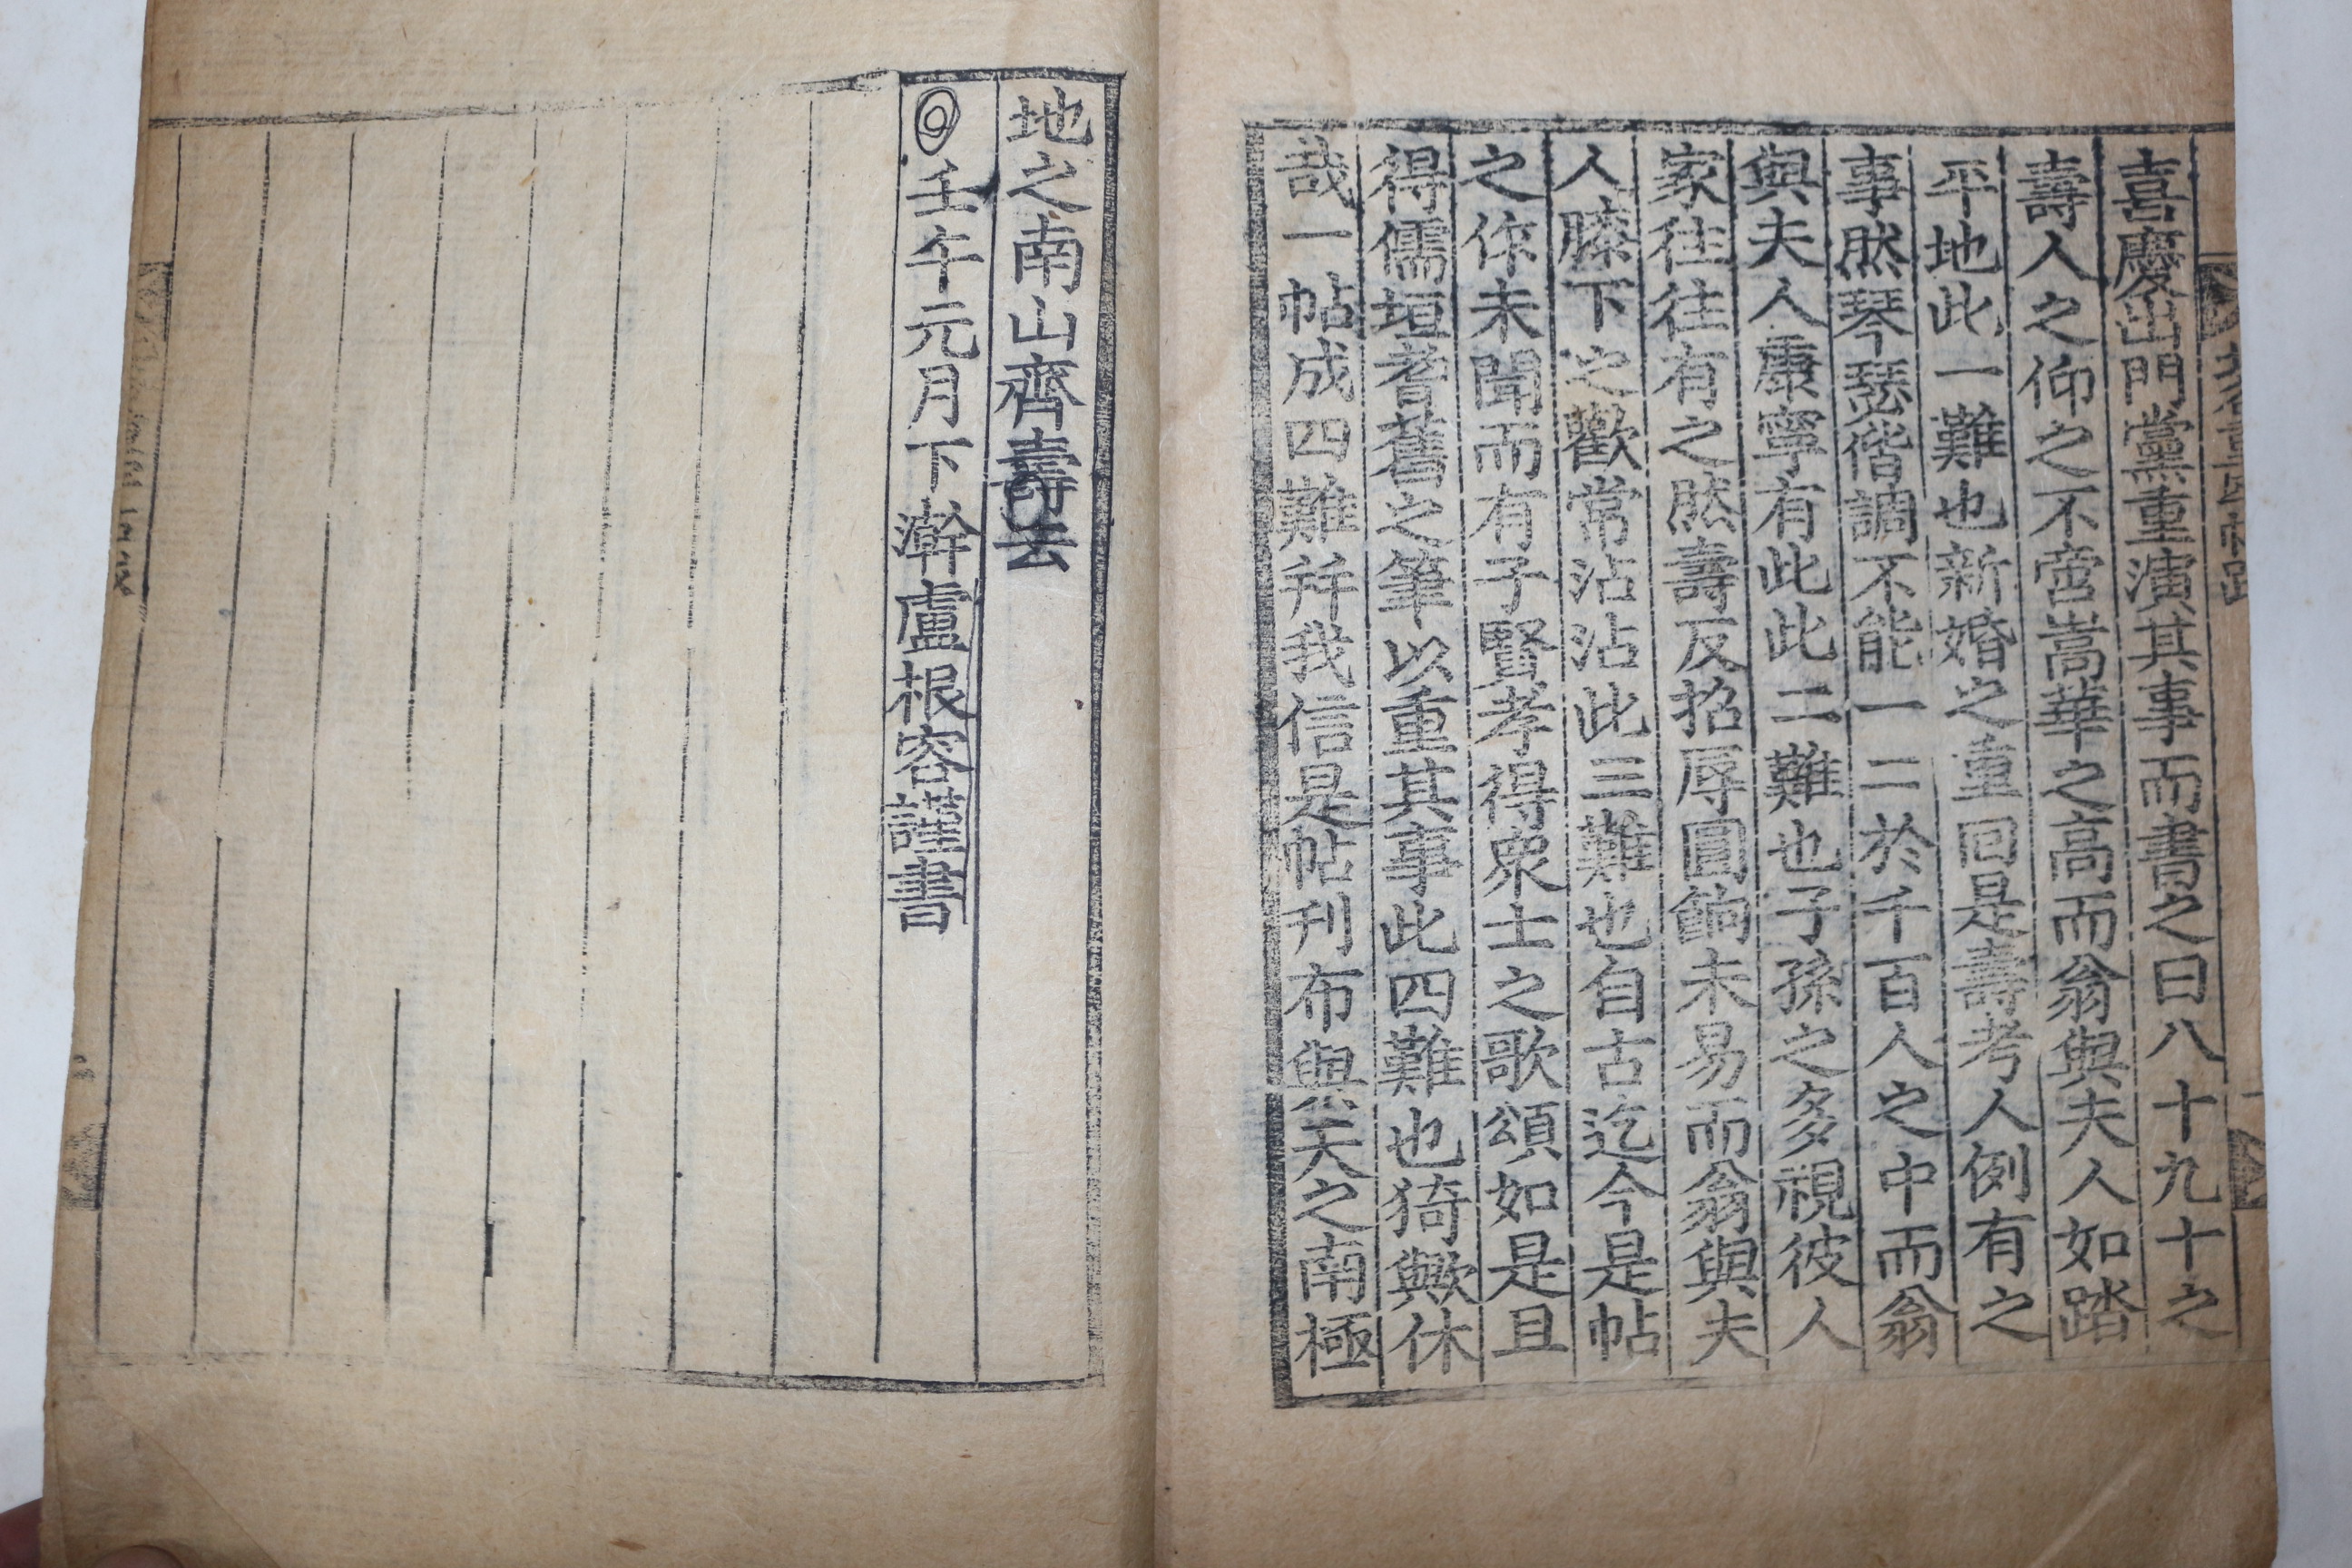 喜慶出門黨重演其事而書之曰八十九十之
壽人之仰之不啻嵩華之高而翁與夫人如踏
平地此一難也新婚之重回是壽考人例有之
事然琴瑟偕調不能一二於千百人之中而翁
與夫人康寧有此此二難也子孫之多視彼人
家往往有之然壽反招辱圓餉未易而翁與夫
人膝下之歡常沾沾此三難也自古迄今是帖
之作未聞而有子賢孝得衆士之歌頌如是且
得儒垣耆舊之筆以重其事此四難也猗歟休
哉一帖成四難幷我信是帖刊布與天之南極
地之南山齊壽云
◎壬午元月下澣盧根容謹書